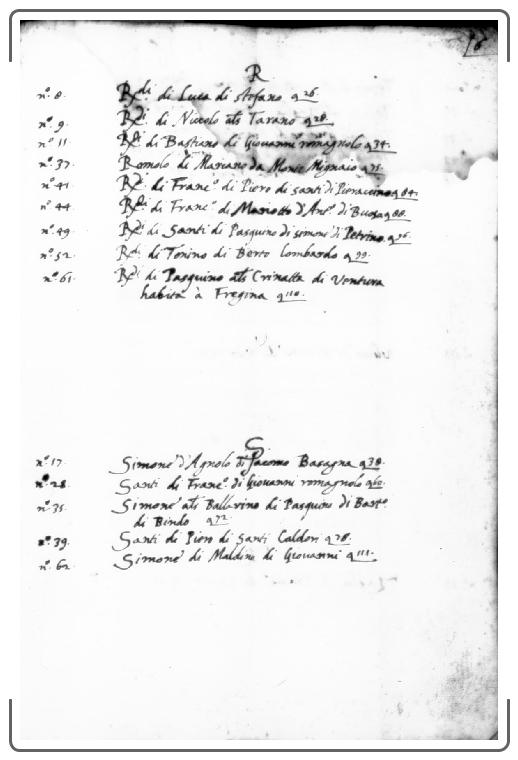 R
nº. 8. Rdi. di Luca di Stefano q 26.
nº. 9. Rdi. di Niccolo als Tarano q 28.
nº 11 Rdi. di Bastiano di Giovanni romagnolo q 34.
nº. 37. Romolo di Mariano da Monte Mignaio q
nº. 41 Rdi. di Franc.º di Piero di Santi di q 84.
nº. 44. Rdi. di Franc.º di Mariotto d'Ant.º di q 88.
nº. 49. Rdi di Santi di Pasquino di simone di Petrino q 96.
nº. 52. Rdi. di Tonino di Berto lombardo q 99.
nº. 61. Rdi di Pasquino als Crinatta di Ventura
habita à Fregina q 110.
S
nº. 17. Simone d'Agnolo di Jacomo q 38.
nº. 28. Santi di Franc.º di Giovanni romagnolo q 60.
nº. 35. Simone als Ballerino di Pasquino di Bast.º
di Bindo q 72.
nº. 39. Santi di Piero di Santi Caldori q 78.
nº. 62. Simone di Maldino di Giovanni q 111.